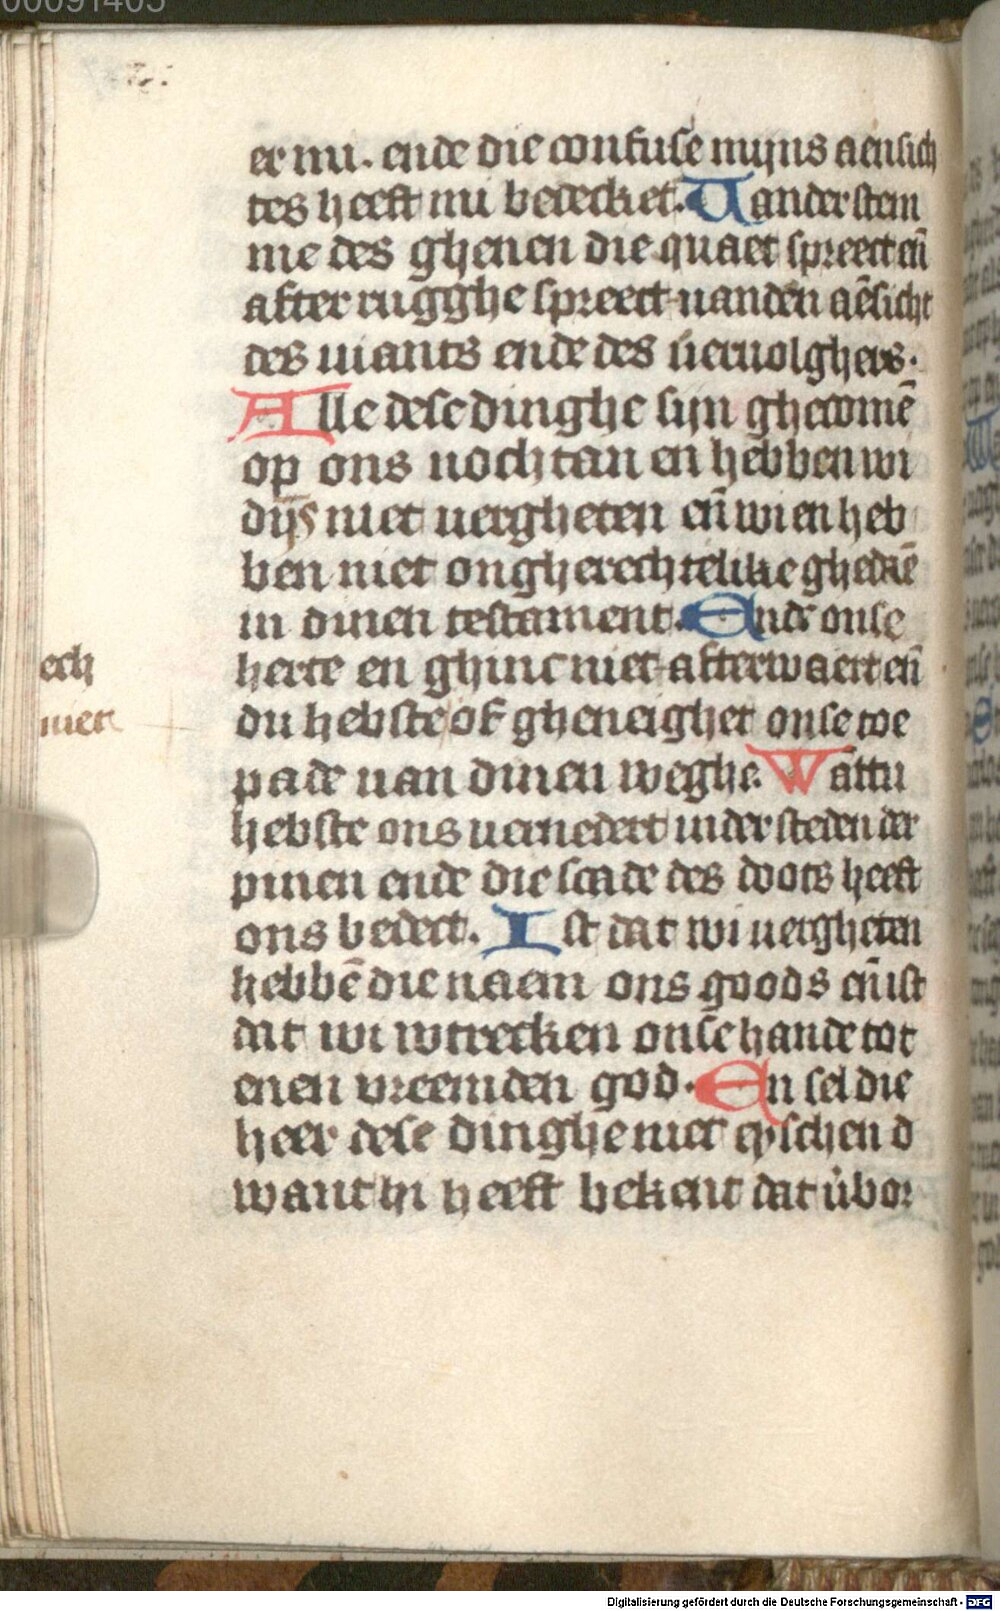 er nu. ende die confuse mijns aensich
tes heeft nu bedecket. Uander stem
me des ghenen die quaet spreect eñ
after rugghe spreect uanden aēsicht
des uiants ende des ūeruolghers.
Alle dese dinghe sijn ghecomē
op ons nochtan en hebben wi
dijs niet uergheten eñ wi en heb
ben niet ongherechtelike ghedaē
in dinen testament. Ende onse
herte en ghinc niet afterwaert eñ
du hebste of gheneighet onse toe
pade uan dinen weghe. Wāttu
hebste ons uernedert inder steden der
pinen ende die scade des doots heeft
ons bedect. Ist dat wi uergheten
hebbē die naem ons goods eñ ist
dat wi wtrecken onse hande tot
enen vreemden god. En sel die
heer dese dinghe niet eyschen d
want hi heeft bekent dat ūbor
ech
niet